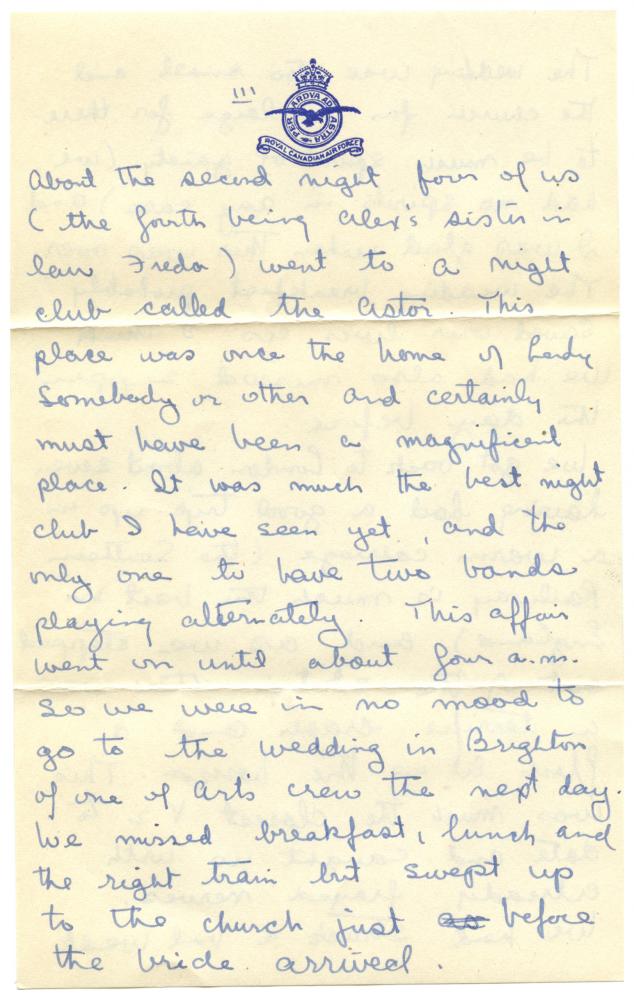 III
PER ARDVA AD ASTRA
ROYAL CANADIAN AIR FORCE
About the second night four of us
( the fourth being Alex's sister in
law Freda ) went to a night
club called the Astor. This
place was once the home of Lady
Somebody or other and certainly
must have been a magnificent
place. It was much the best night
club I have seen yet, and the
only one to have two bands
playing alternately. This affair
went on until about four a.m.
so we were in no mood to
go to the wedding in Brighton
of one of Art's crew the next day.
We missed breakfast, lunch and
the right train but swept up
to the church just as before
the bride arrived.